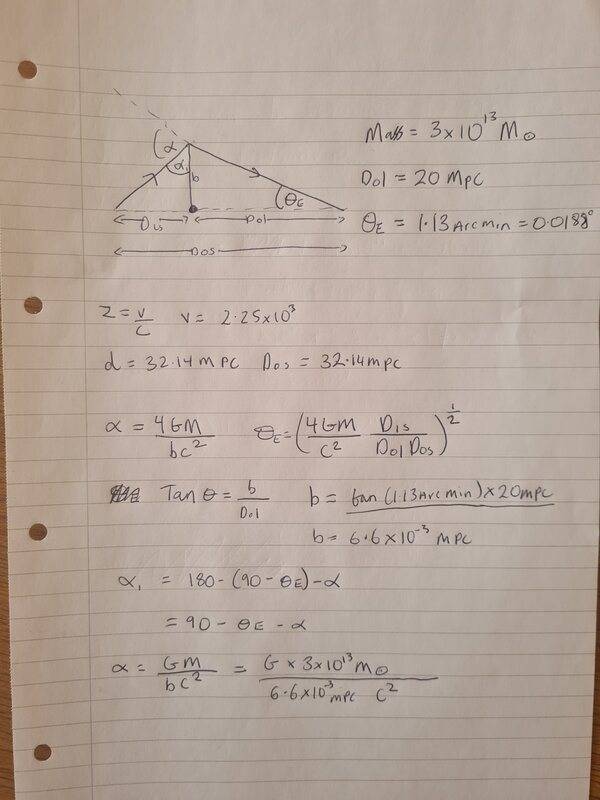 α
α₁
b
θE
Dls
Dol
Dos
Mass = 3×10¹³ M⊙
Dol = 20 Mpc
θE = 1.13 Arcmin = 0.0188°
z = v/c   v = 2.25×10³
d = 32.14 Mpc   Dos = 32.14 mpc
α = 4GM/bc²   θE = (4GM/c² Dls/Dol Dos)^½
Tan θ = b/Dol   b = tan(1.13 Arcmin)×20mpc
b = 6.6×10⁻³ Mpc
α₁ = 180-(90-θE)-α
= 90 - θE - α
α = GM/bc² = G × 3×10¹³ M⊙/6.6×10⁻³ mpc c²